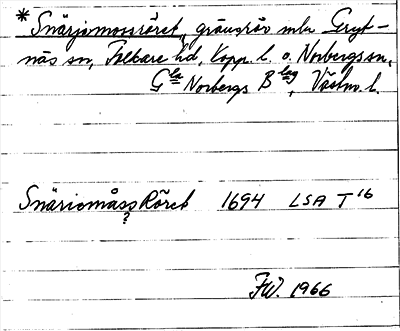 * "Snärjomossröret", gränsrör mln Gryt-
näs sn, Folkare hd, Kopp. l. o. Norbergs sn,
Gla Norbergs Blag, Västm. l.
SnäriomåssRöret 1694 LSA T16
?
FW. 1966